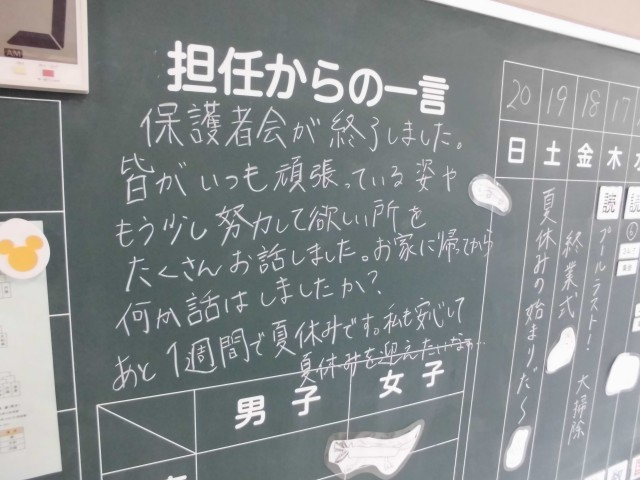 担任からの一言
保護者会が終了しました。
皆がいつも頑張っている姿や
もう少し努力して欲しい所を
たくさんお話しました。お家に帰ってから
何か話はしましたか？
あと1週間で夏休みです。私も安心して
夏休みを迎えたいなぁ…
男子
女子
20
19
18
17
日
土
金
木
夏休みの始まりだ～
終業式
大掃除
プールラスト！
読